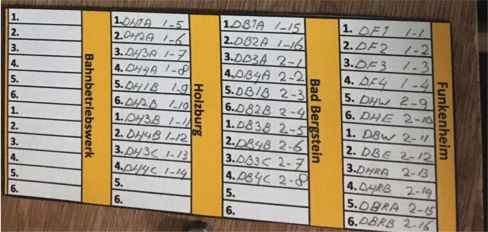 1.
2.
3.
4.
5.
6.
1.
2.
3.
4.
5.
6.
Bahnbetriebswerk
1. DH1A 1-5
2. DH2A 1-6
3. DH3A 1-7
4. DH4A 1-8
5. DH1B 1-9
6. DH2B 1-10
1. DH3B 1-11
2. DH4B 1-12
3. DH3C 1-13
4. DH4C 1-14
5.
6.
Holzburg
1. DB1A 1-15
2. DB2A 1-16
3. DB3A 2-1
4. DB4A 2-2
5. DB1B 2-3
6. DB2B 2-4
1. DB3B 2-5
2. DB4B 2-6
3. DB3C 2-7
4. DB4C 2-8
5.
6.
Bad Bergstein
1. DF1 1-1
2. DF2 1-2
3. DF3 1-3
4. DF4 1-4
5. DHW 2-9
6. DHE 2-10
1. DBW 2-11
2. DBE 2-12
3. DHRA 2-13
4. DHRB 2-14
5. DBRA 2-15
6. DBRB 2-16
Funkenheim